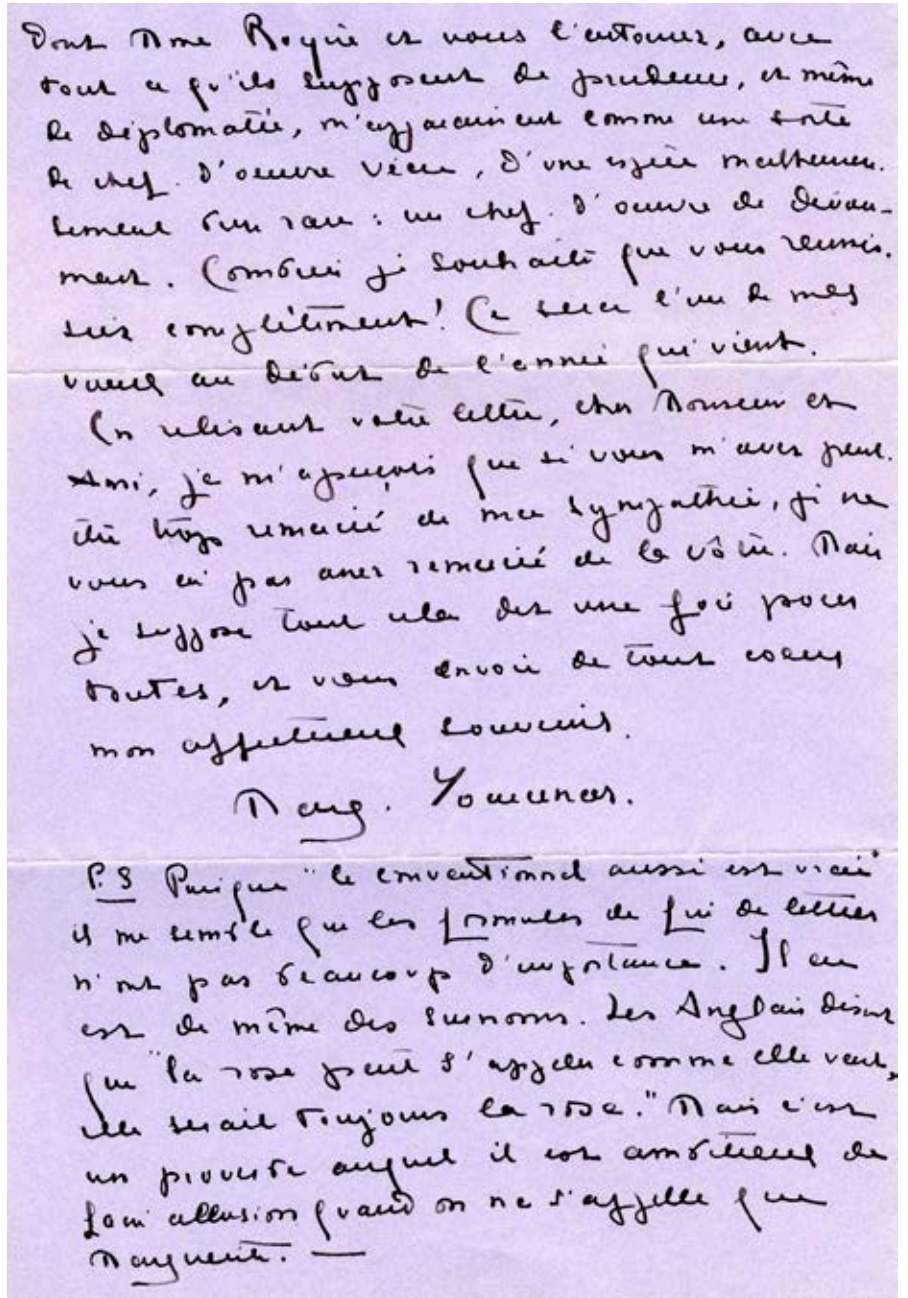 Dont Mme Royère et vous l'entourez, avec
tout ce qu'ils supposent de prudence, et même
de diplomatie, m'apparaissent comme une sorte
de chef-d'oeuvre vécu, d'une espèce malheureu-
sement bien rare : un chef-d'oeuvre de dévoue-
ment. Combien je souhaite que vous réussis-
siez complètement! Ce sera l'un de mes
voeux au début de l'année qui vient.
En relisant votre lettre, cher Monsieur et
Ami, je m'aperçois que si vous m'avez peut-
être trop remercié de ma sympathie, je ne
vous ai pas assez remercié de la vôtre. Mais
je suppose tout cela dit une fois pour
toutes, et vous envoie de tout coeur
mon affectueux souvenir.
Marg. Yourcenar.
P.S Puisque "le conventionnel aussi est vrai"
il me semble que les formules de fin de lettres
n'ont pas beaucoup d'importance. Il en
est de même des surnoms. Les Anglais disent
que "la rose peut s'appeler comme elle veut,
elle serait toujours la rose." Mais c'est
un proverbe auquel il est ambitieux de
faire allusion quand on ne s'appelle que
Marguerite. —